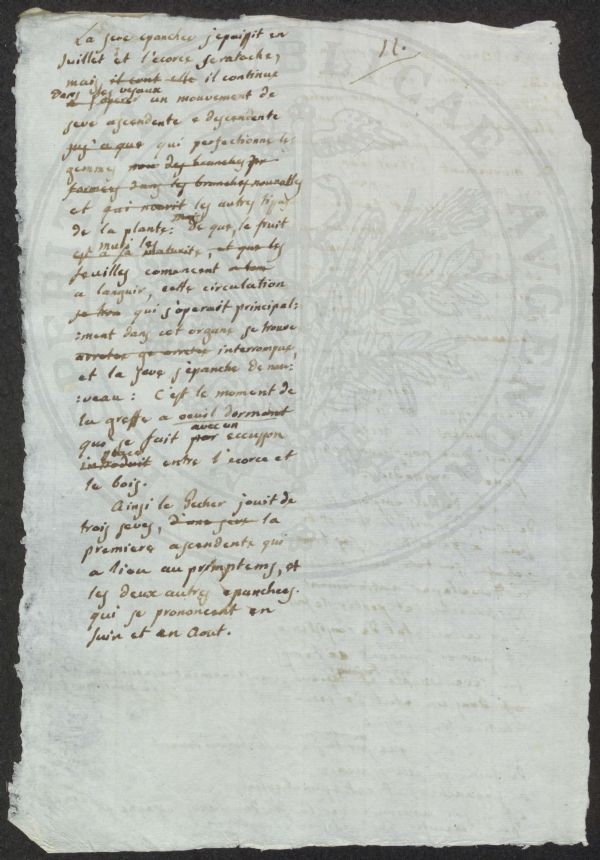 11.
La seve epanchee s'epaissit en
Juillet et l'écorce seratache,
mais il cont elle il continue
Dans ses vesaux
a s'operer un mouvement de
seve ascendente e descendente
jusqu'a que qui perfectionne les
gemmes des branches
formées dans les branches nouvelles
et qui nourit les autres tiges
de la plante: mais De que le fruit
est a sa maturité, et que les
muri les
feuilles comencent a
a languir, cette circulation
qui s'operait principal:
:ment dans cet organe se trouve
arretee arretee interrompue,
et la seve s'epanche de nou:
:veau: C'est le moment de
la greffe a oeuil dormant
avec un
qui se fait par ecusson
placé
introduit entre l'ecorce et
le bois.
Ainsi le Pecher jouit de
trois seves, d'une seve la
premiere ascendente qui
a lieu au promptems, et
les deux autres epanchees
qui se prononcent en
Juin et en Aout.